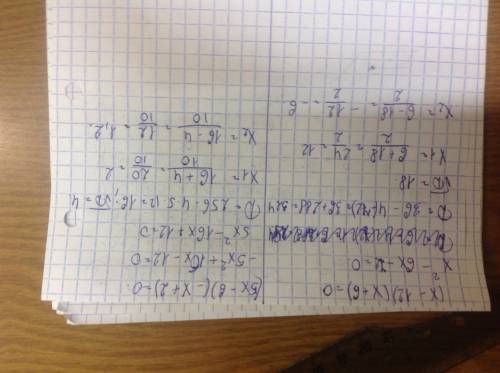 (x-12)(x+6)=0
x²-6x-72=0
D=36-4(-72)=36+288=324
√D=18
x₁=(6+18)/2=24/2=12
x₂=(6-18)/2=-12/2=-6
(5x-6)(-x+2)=0
-5x²+16x-12=0
5x²-16x+12=0
D=256-4·5·12=16; √D=4
x₁=(16+4)/10=20/10=2
x₂=(16-4)/10=12/10=1,2.